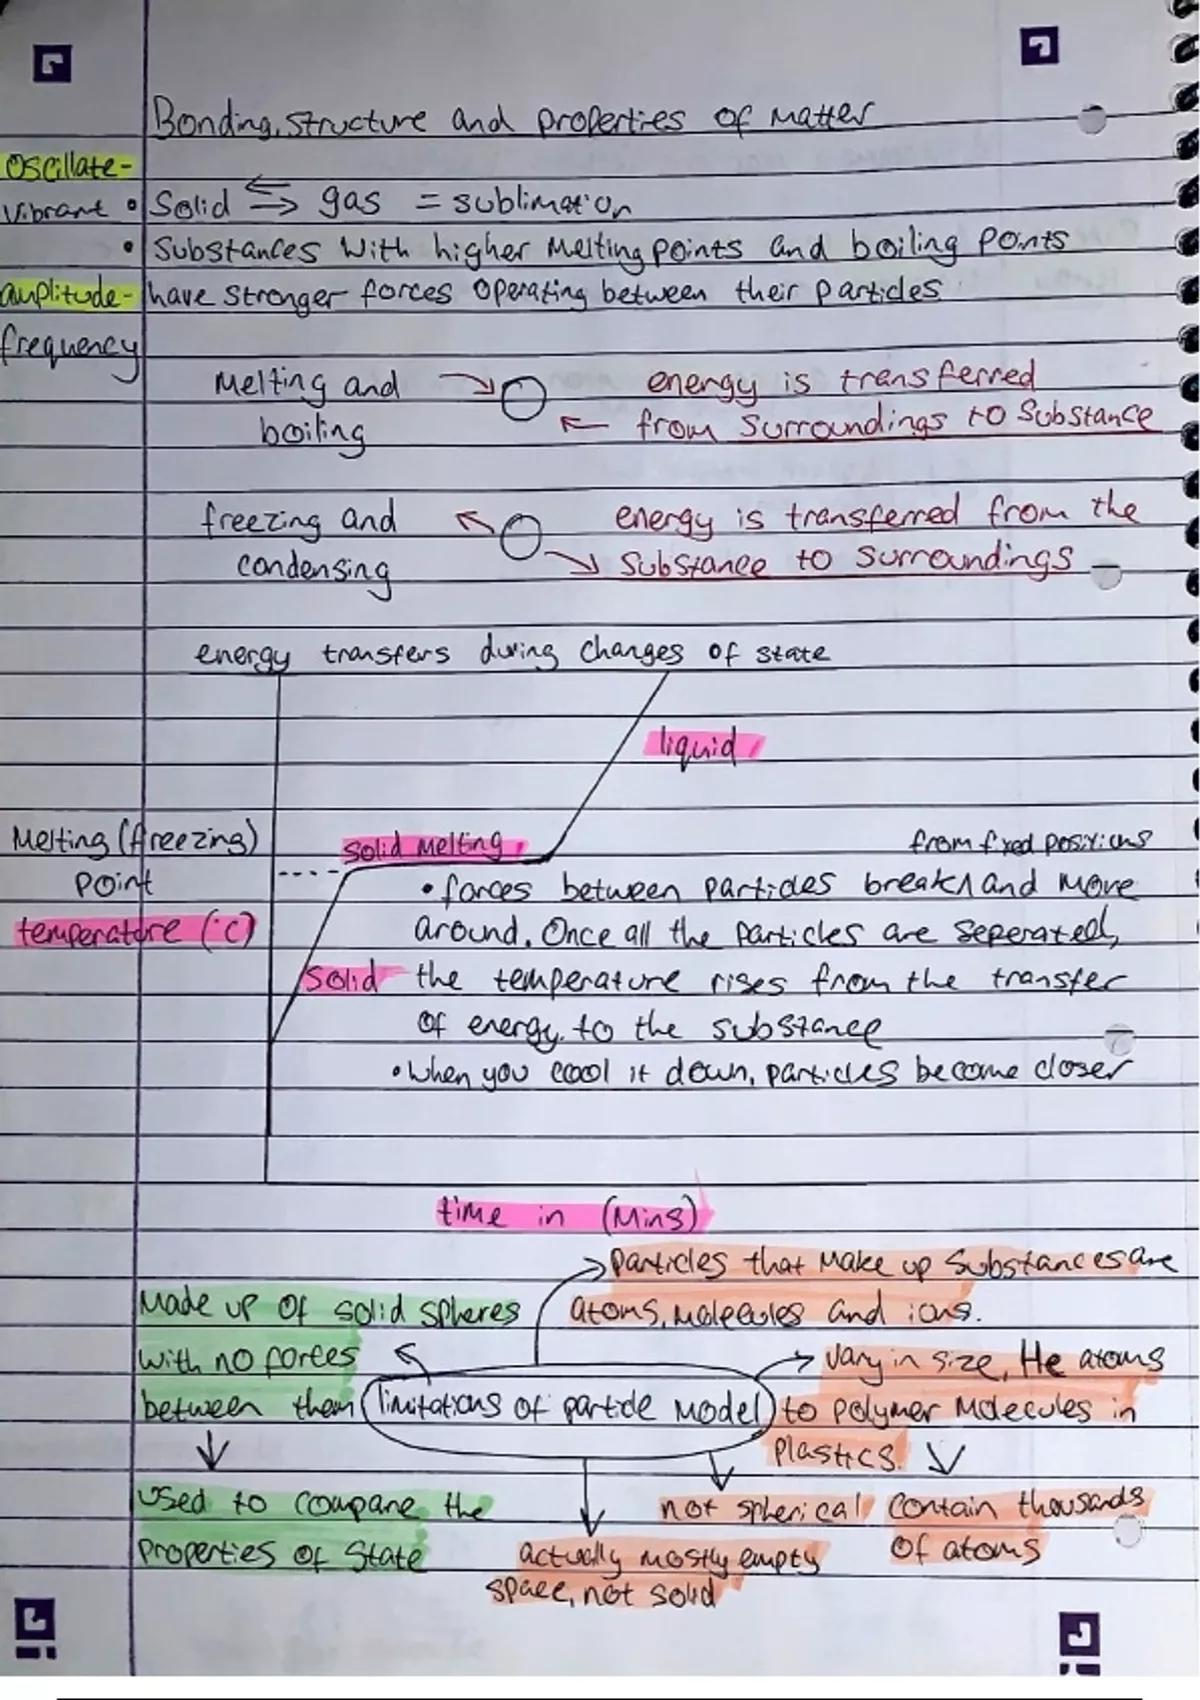 Bonding, structure and properties of matter
Oscillate-
vibrant • Solid ⇌ gas = sublimation
• Substances with higher melting points and boiling points
amplitude- have stronger forces operating between their particles
frequency
melting and energy is transferred
boiling from surroundings to substance
freezing and energy is transferred from the
condensing substance to surroundings
energy transfers during changes of state
liquid
Melting (freezing) solid melting from fixed positions
point • forces between particles break ∧ and move
temperature (°C) around. Once all the particles are seperated,
solid the temperature rises from the transfer
of energy to the substance
• when you cool it down, particles become closer
time in (mins)
particles that make up substances are
Made up of solid spheres atoms, molecules and ions.
with no forces vary in size, He atoms
between them limitations of particle model to polymer molecules in
plastics.
used to compare the not spherical contain thousands
properties of state actually mostly empty of atoms
space, not solid